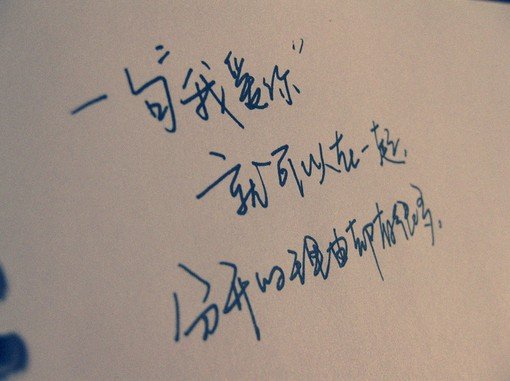 一句“我爱你”
就可以在一起,
分开的理由却有很多.